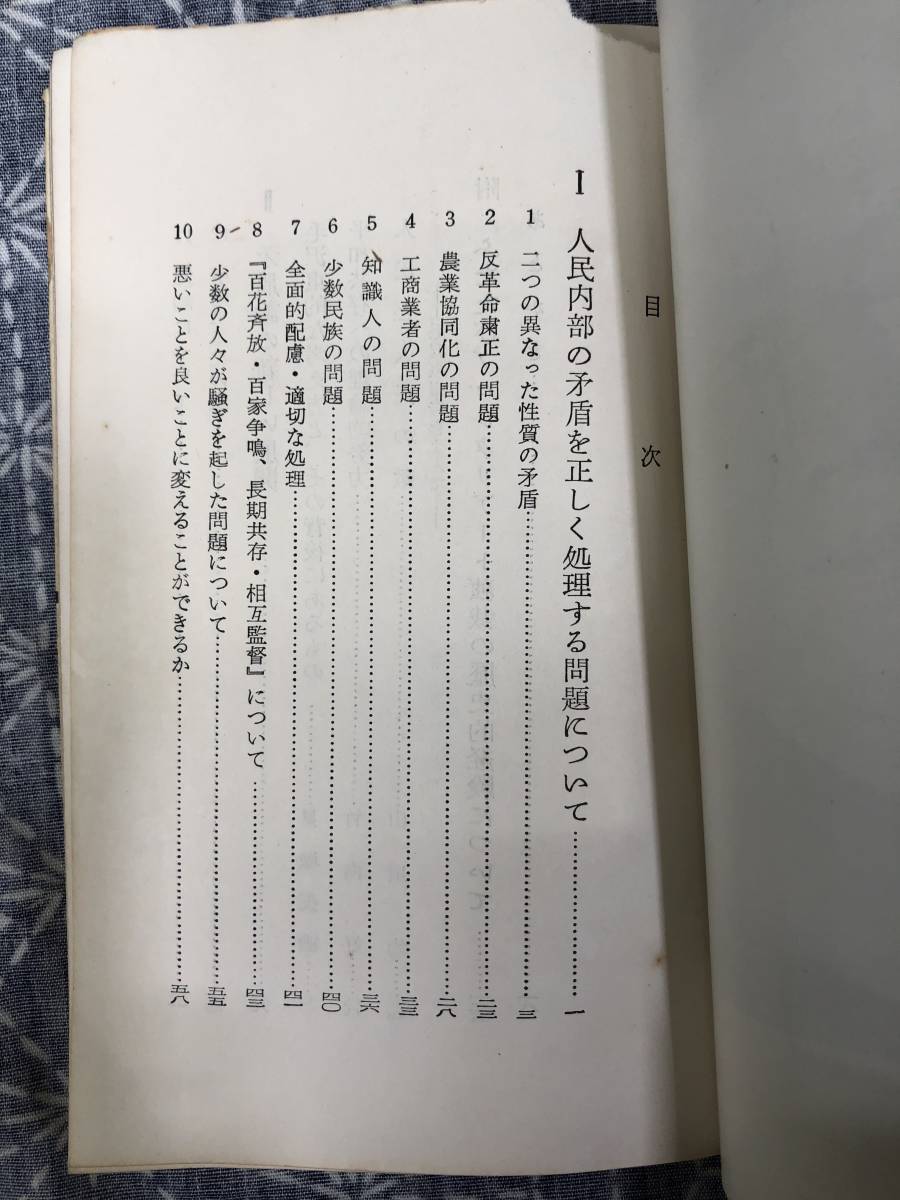 目次
Ⅰ 人民内部の矛盾を正しく処理する問題について…………一
1 二つの異なった性質の矛盾…………三
2 反革命粛正の問題…………二三
3 農業協同化の問題…………二八
4 工商業者の問題…………三三
5 知識人の問題…………三六
6 少数民族の問題…………四〇
7 全面的配慮・適切な処理…………四一
8 『百花斉放・百家争鳴、長期共存・相互監督』について…………四三
9 少数の人々が騒ぎを起した問題について…………五五
10 悪いことを良いことに変えることができるか…………五八